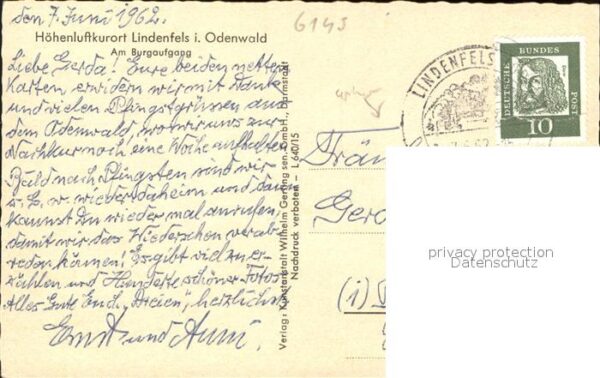 den 7. Juni 1962.
6143
Höhenluftkurort Lindenfels i. Odenwald
Am Burgaufgang
Liebe Gerda! Eure beiden netten
Karten erwidern wir mit Dank
und vielen Pfingstgrüssen aus
dem Odenwald, wo wir uns zur
Nachkur noch eine Woche aufhalten.
Bald nach Pfingsten sind wir
wieder daheim und dann
kannst Du wieder mal anrufen,
damit wir das Wiedersehen verab-
reden können! Es gibt viel zu er-
zählen und Hunderte schöner Fotos
Alles Gute Euch „Dreien", herzlichst
Ernst und Anni.
Verlag: Kunstanstalt Wilhelm Gerling sen. GmbH., Darmstadt
Nachdruck verboten - L 640/15
LINDENFELS
DEUTSCHE BUNDES POST
10
Gerd
(i)
privacy protection
Datenschutz